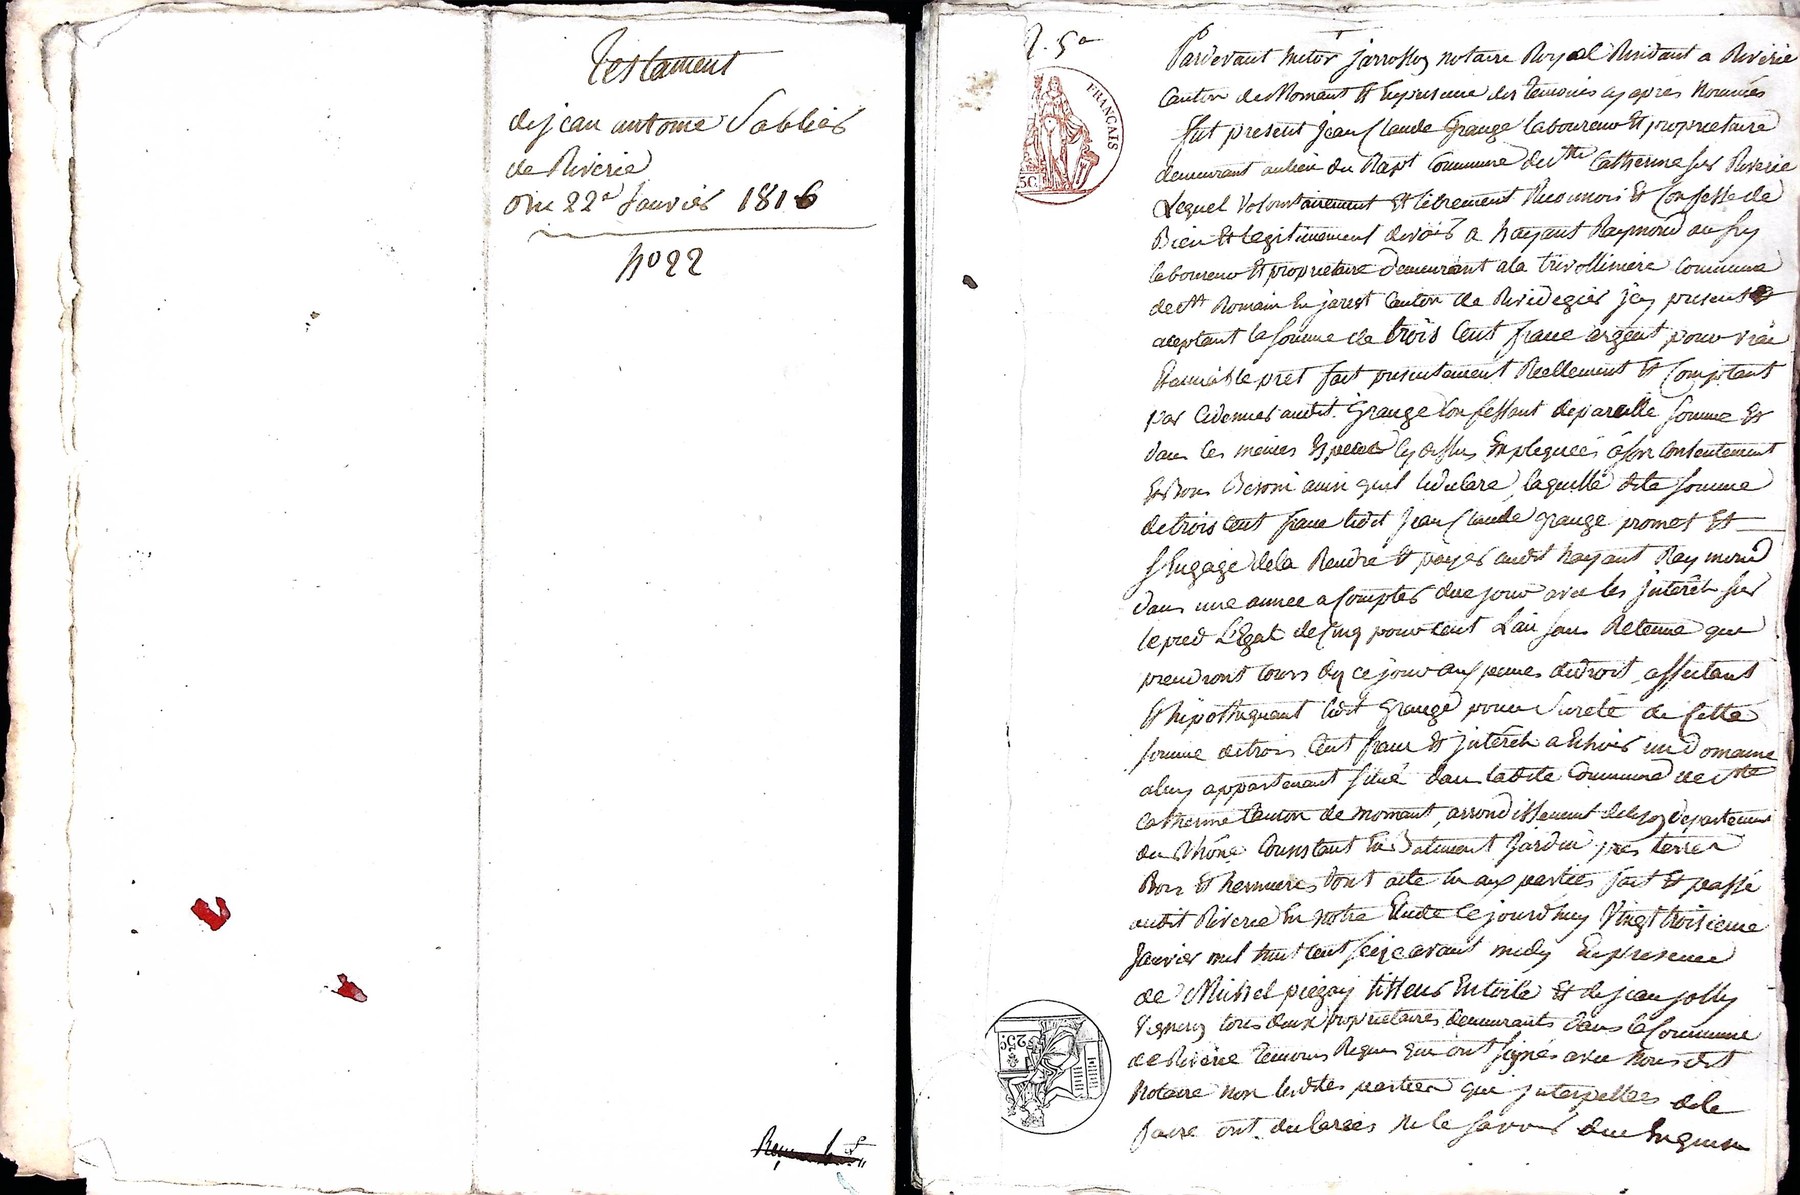 Testament
de jean antoine Sablier
de Riverie
Du 22e Janvier 1816
No 22
2. 5e
FRANCAIS
5C.
25c.
Pardevant Metor jarrosson notaire Royal Residant a Riverie
Canton de Mornant Et En presence des temoins cy après Nommés
fut present Jean Claude Grange laboureur Et proprietaire
demeurant au lieu du Commune de Ste Catherine sur Riverie
Lequel volontairement Et librement Reconnois Et Confesse de
Bien Et legitimement devoir a hayant Raymond au fry
laboureur Et proprietaire demeurant a la trivollimiere Commune
de St Romain En jarest Canton de Rivedegier jcy present Et
aceptant la somme de trois Cent franc argent pour vrai
Et amiable pret fait presentement Reellement Et Comptant
par ce dernier audit Grange Confessant de pareille somme Et
dans les memes Especes cy dessus Expliquées à son contentement
Et Bon Besoin ainsi quil le declare, laquelle dite somme
de trois Cent franc ledit Jean Claude Grange promet Et
sEngage de la Rendre Et payer audit hayant Raymond
dans une année a Compter de ce jour avec les jnterêts sur
le pied Légal de Cinq pour Cent Lan sans Retenue qui
prendront cours dez ce jour aux peines de droit, affectant
Et hipothequant ledit Grange pour Sureté de Cette
somme de trois Cent franc Et jnterêts a Echoir un Domaine
a luy appartenant situé dans ladite Commune de Ste
Catherine Canton de mornant, arrondissement de Lyon departement
du Rhône Consistant En Batiment Jardin près terres
Bois Et hermures dont acte lu aux parties fait Et passé
audit Riverie En notre Etude Ce jourdhuy Vingt troisieme
Janvier mil huit cent seize avant midy En presence
de Michel piegay tisseur En toile Et de jean jolly
Vigneron tous deux proprietaires demeurants dans la Commune
de Riverie temoins Requis qui ont signés avec Nous dit
Notaire non lesdites parties qui jnterpellées de le
faire ont declarées Ne le savoir de ce Enquises